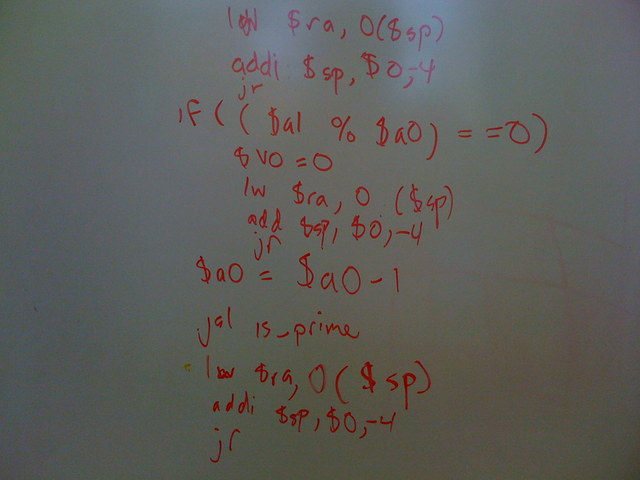 lw $ra, 0($sp)
addi $sp, $0, -4
jr
if ( ( $a1 % $a0) = = 0)
$v0 = 0
lw $ra, 0 ($sp)
add $sp, $0, -4
jr
$a0 = $a0 - 1
jal is_prime
lw $ra, 0($sp)
addi $sp, $0, -4
jr